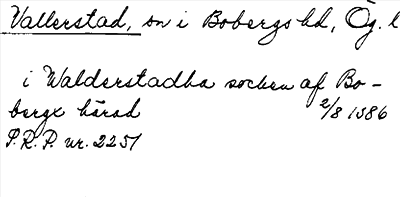 Vallerstad, sn i Bobergs hd, Ög. l
i Walderstadha socken af Bo-
bergx härad 2/8 1386
P.R.P. nr. 2251